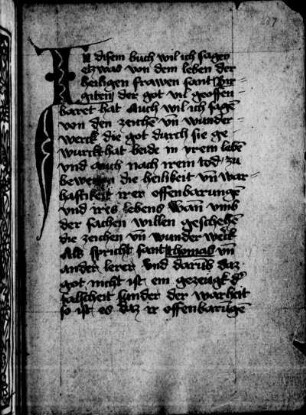 In disem buch wil ich sagen
etzwas von dem leben der
heiligen frawen sant Bir
giten der got vil geoffen
baret hat Auch wil ich sage
von den zeiche vn wunder
werck die got durch sie ge
wurckt hat beide in yrem lebe
vnd auch nach irem tod zu
beweysen die heilikeit vn war
haftikeit irer offenbarunge
vnd ires lebens Wan vmb
der sachen willen geschehe
die zeichen vn wunder werk
Als spricht sant thomas vn
ander lerer Vnd darvmb daz
got nicht ist ein gezeugk d
falscheit sunder der warheit
so ist es daz ir offenbarunge